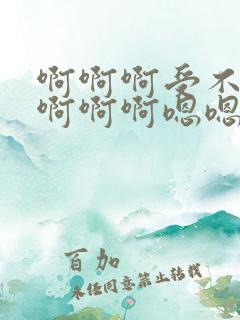 啊啊啊受不
啊啊啊嗯嗯
百加
未经同意禁止转载